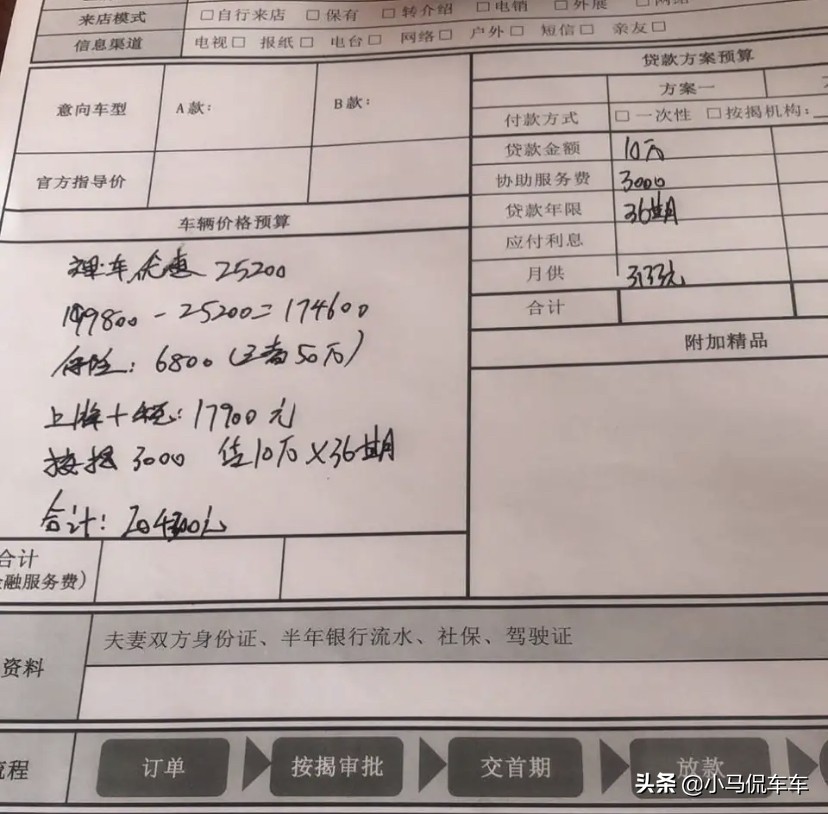 来店模式 □自行来店 □保有 □转介绍 □电销 □外展
信息渠道 电视□ 报纸□ 电台□ 网络□ 户外□ 短信□ 亲友□
意向车型 A款: B款:
官方指导价
车辆价格预算
现车优惠 25200
199800-25200=174600
保险: 6800 (三者50万)
上牌+税: 17900元
按揭 3000 贷10万×36期
合计:
合计
金融服务费)
贷款方案预算
方案一
付款方式 □一次性 □按揭机构:
贷款金额 10万
协助服务费 3000
贷款年限 36期
应付利息
月供 3133元
合计
附加精品
资料 夫妻双方身份证、半年银行流水、社保、驾驶证
流程 订单 按揭审批 交首期 放款
头条 @小马侃车车